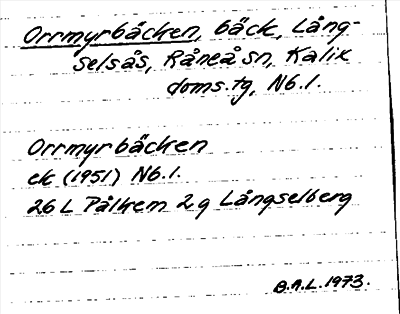 Orrmyrbäcken, bäck, Lång-
selsås, Råneå sn, Kalix
doms.tg, Nb.l.
Orrmyrbäcken
ek (1951) Nb.l.
26 L Pålkem 2g Långselberg
B.A.L. 1973.